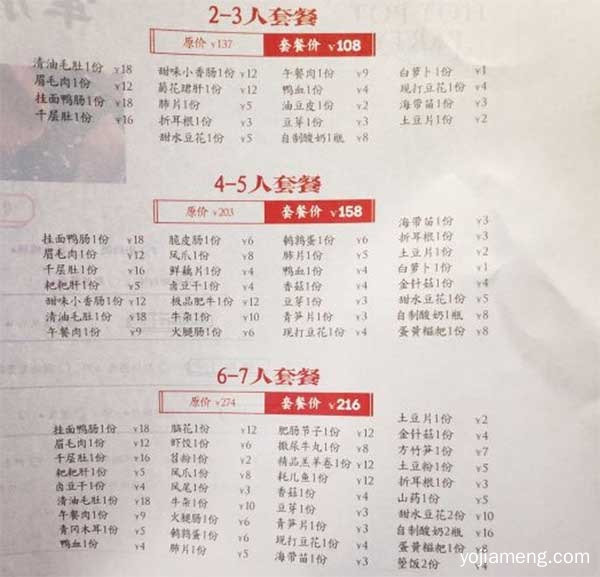 2-3人套餐
原价 ¥137 套餐价 ¥108
清油毛肚1份 ¥18
眉毛肉1份 ¥12
挂面鸭肠1份 ¥18
千层肚1份 ¥16
甜味小香肠1份 ¥12
菊花珺肝1份 ¥12
肺片1份 ¥5
折耳根1份 ¥3
甜水豆花1份 ¥5
午餐肉1份 ¥9
鸭血1份 ¥4
油豆皮1份 ¥2
豆芽1份 ¥3
自制酸奶1瓶 ¥8
白萝卜1份 ¥1
现打豆花1份 ¥4
海带苗1份 ¥3
土豆片1份 ¥2
4-5人套餐
原价 ¥203 套餐价 ¥158
挂面鸭肠1份 ¥18
眉毛肉1份 ¥12
千层肚1份 ¥16
粑粑肝1份 ¥5
甜味小香肠1份 ¥12
清油毛肚1份 ¥18
午餐肉1份 ¥9
脆皮肠1份 ¥6
凤爪1份 ¥8
鲜藕片1份 ¥4
卤豆干1份 ¥4
极品肥牛1份 ¥12
牛杂1份 ¥10
火腿肠1份 ¥6
鹌鹑蛋1份 ¥6
肺片1份 ¥5
鸭血1份 ¥4
香菇1份 ¥4
豆芽1份 ¥3
青笋片1份 ¥3
现打豆花1份 ¥4
海带苗1份 ¥3
折耳根1份 ¥3
土豆片1份 ¥2
白萝卜1份 ¥1
金钎菇1份 ¥4
甜水豆花1份 ¥5
自制酸奶1瓶 ¥8
蛋黄糍粑1份 ¥8
6-7人套餐
原价 ¥274 套餐价 ¥216
挂面鸭肠1份 ¥18
眉毛肉1份 ¥12
千层肚1份 ¥16
粑粑肝1份 ¥5
卤豆干1份 ¥4
清油毛肚1份 ¥18
午餐肉1份 ¥9
青冈木耳1份 ¥5
鸭血1份 ¥4
脑花1份 ¥12
虾饺1份 ¥6
苕粉1份 ¥2
凤爪1份 ¥8
凤尾1份 ¥3
牛杂1份 ¥10
火腿肠1份 ¥6
鹌鹑蛋1份 ¥6
肺片1份 ¥5
肥肠节子1份 ¥12
撒尿牛丸1份 ¥8
精品羔羊卷1份 ¥12
耗儿鱼1份 ¥12
香菇1份 ¥4
豆芽1份 ¥3
青笋片1份 ¥3
现打豆花1份 ¥4
海带苗1份 ¥3
土豆片1份 ¥2
金钎菇1份 ¥4
方竹笋1份 ¥7
土豆粉1份 ¥5
折耳根1份 ¥3
山药1份 ¥5
甜水豆花2份 ¥10
自制酸奶2瓶 ¥16
蛋黄糍粑1份 ¥8
筀饭2份 ¥4
yojiameng.com